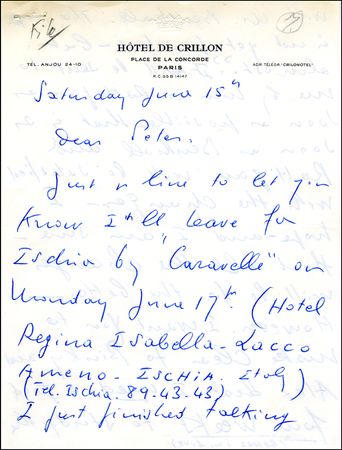 File
HÔTEL DE CRILLON
PLACE DE LA CONCORDE
PARIS
TÉL. ANJOU 24-10
ADR. TÉLÉGR. "CRILONOTEL"
R.C. 55 B 14147
Saturday June 15th
Dear Peter.
Just a line to let you
know I'll leave for
Ischia by "Caravelle" on
Monday June 17th. (Hotel
Regina Isabella - Lacco
Ameno - ISCHIA. Italy)
(Tel. Ischia. 89-43-43)
I just finished talking